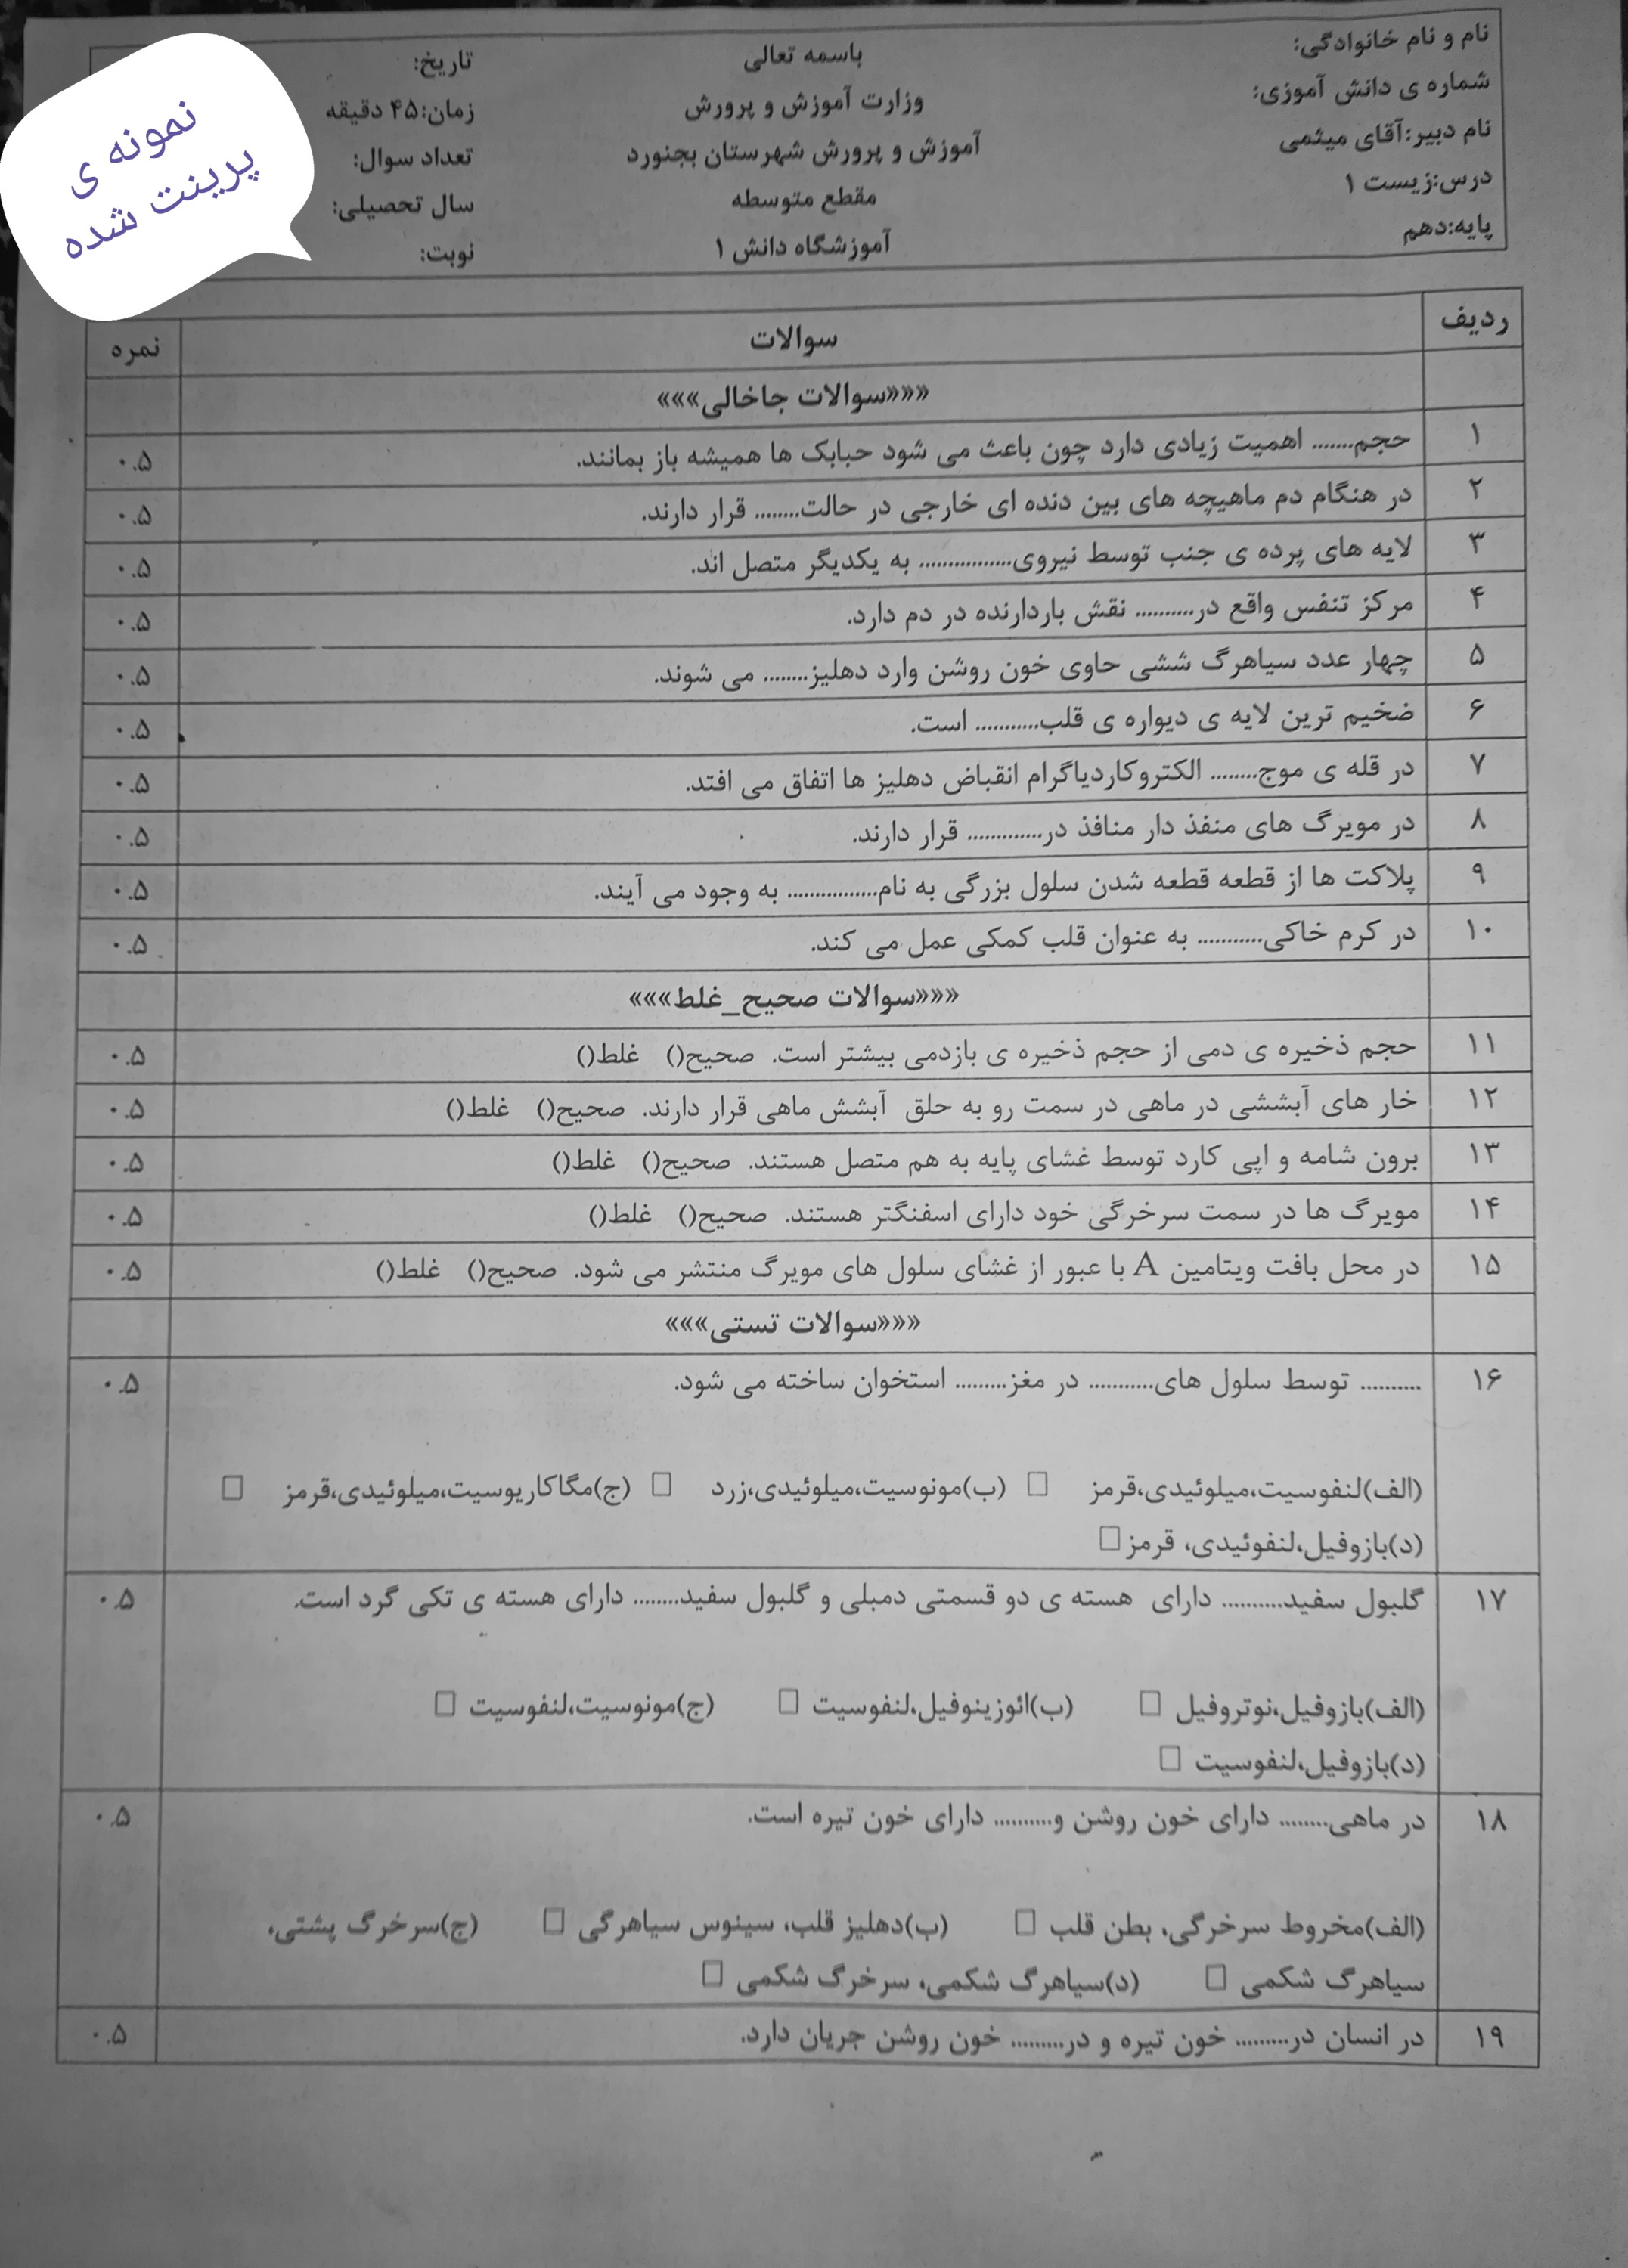 نمونه ی
پرینت شده
نام و نام خانوادگی:
شماره ی دانش آموزی:
نام دبیر:آقای میثمی
درس:زیست ۱
پایه:دهم
باسمه تعالی
وزارت آموزش و پرورش
آموزش و پرورش شهرستان بجنورد
مقطع متوسطه
آموزشگاه دانش ۱
تاریخ:
زمان:۴۵ دقیقه
تعداد سوال:
سال تحصیلی:
نوبت:
ردیف سوالات نمره
«««سوالات جاخالی»»»
۱ حجم....... اهمیت زیادی دارد چون باعث می شود حبابک ها همیشه باز بمانند. ۰.۵
۲ در هنگام دم ماهیچه های بین دنده ای خارجی در حالت........ قرار دارند. ۰.۵
۳ لایه های پرده ی جنب توسط نیروی................ به یکدیگر متصل اند. ۰.۵
۴ مرکز تنفس واقع در.......... نقش باردارنده در دم دارد. ۰.۵
۵ چهار عدد سیاهرگ ششی حاوی خون روشن وارد دهلیز........ می شوند. ۰.۵
۶ ضخیم ترین لایه ی دیواره ی قلب........... است. ۰.۵
۷ در قله ی موج........ الکتروکاردیاگرام انقباض دهلیز ها اتفاق می افتد. ۰.۵
۸ در مویرگ های منفذ دار منافذ در............. قرار دارند. ۰.۵
۹ پلاکت ها از قطعه قطعه شدن سلول بزرگی به نام................ به وجود می آیند. ۰.۵
۱۰ در کرم خاکی........... به عنوان قلب کمکی عمل می کند. ۰.۵
«««سوالات صحیح_غلط»»»
۱۱ حجم ذخیره ی دمی از حجم ذخیره ی بازدمی بیشتر است. صحیح() غلط() ۰.۵
۱۲ خار های آبششی در ماهی در سمت رو به حلق آبشش ماهی قرار دارند. صحیح() غلط() ۰.۵
۱۳ برون شامه و اپی کارد توسط غشای پایه به هم متصل هستند. صحیح() غلط() ۰.۵
۱۴ مویرگ ها در سمت سرخرگی خود دارای اسفنگتر هستند. صحیح() غلط() ۰.۵
۱۵ در محل بافت ویتامین A با عبور از غشای سلول های مویرگ منتشر می شود. صحیح() غلط() ۰.۵
«««سوالات تستی»»»
۱۶ .......... توسط سلول های........... در مغز......... استخوان ساخته می شود. ۰.۵
(الف)لنفوسیت،میلوئیدی،قرمز □ (ب)مونوسیت،میلوئیدی،زرد □ (ج)مگاکاریوسیت،میلوئیدی،قرمز □
(د)بازوفیل،لنفوئیدی، قرمز□
۱۷ گلبول سفید.......... دارای هسته ی دو قسمتی دمبلی و گلبول سفید........ دارای هسته ی تکی گرد است. ۰.۵
(الف)بازوفیل،نوتروفیل □ (ب)ائوزینوفیل،لنفوسیت □ (ج)مونوسیت،لنفوسیت □
(د)بازوفیل،لنفوسیت □
۱۸ در ماهی........ دارای خون روشن و.......... دارای خون تیره است. ۰.۵
(الف)مخروط سرخرگی، بطن قلب □ (ب)دهلیز قلب، سینوس سیاهرگی □ (ج)سرخرگ پشتی،
سیاهرگ شکمی □ (د)سیاهرگ شکمی، سرخرگ شکمی □
۱۹ در انسان در......... خون تیره و در......... خون روشن جریان دارد. ۰.۵